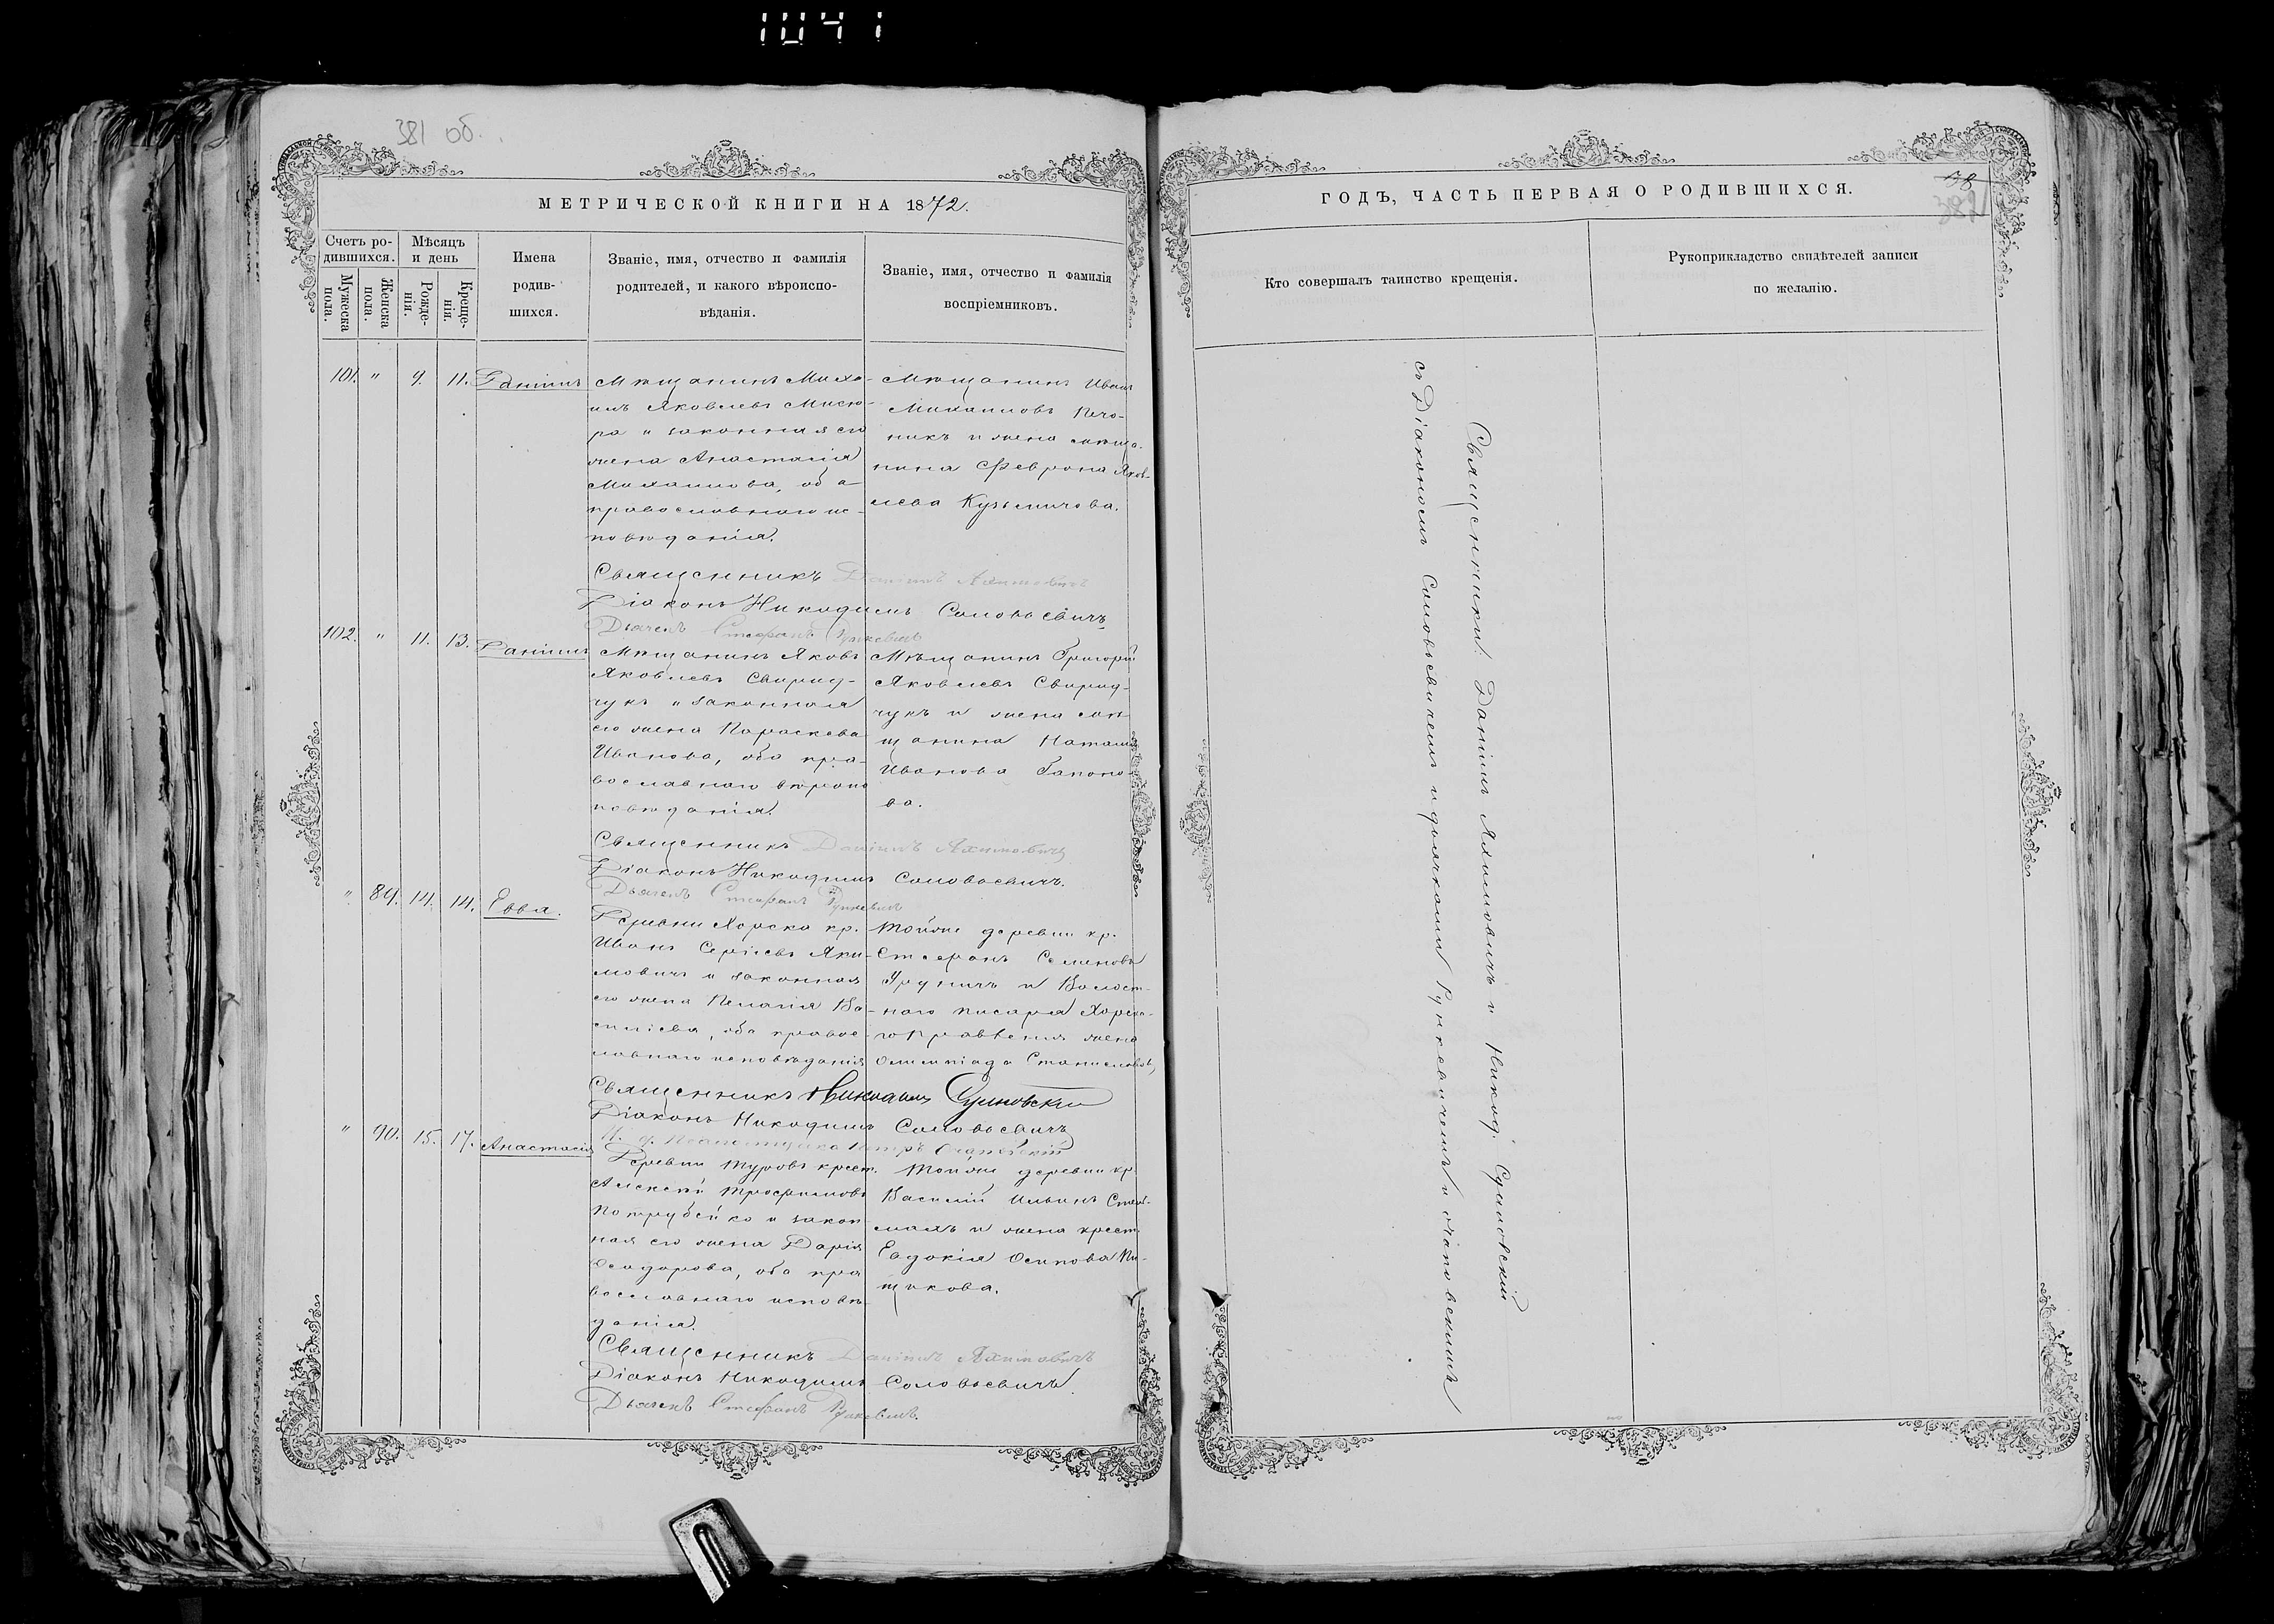 1041
381 об.
МЕТРИЧЕСКОЙ КНИГИ НА 1872.
Счетъ ро-
дившихся.
Мѣсяцъ
и день
Мужеска
пола.
Женска
пола.
Рожде-
нія.
Креще-
нія.
Имена
родив-
шихся.
Званіе, имя, отчество и фамилія
родителей, и какого вѣроиспо-
вѣданія.
Званіе, имя, отчество и фамилія
воспріемниковъ.
101. " 9. 11. Даніилъ
Мѣщанинъ Миха-
илъ Яковлевъ Мисю-
ра и законная его
жена Анастасія
Михаилова, оба
православнаго ис-
повѣданія.
Мѣщанинъ Иванъ
Михаиловъ Печо-
никъ и жена мѣща-
нина Феврона Яков-
лева Кузьмичова.
Священникъ Даніилъ Яхимовичъ
Діаконъ Никодимъ Соловьевичъ
Дьячекъ Стефанъ Рункевичъ
102. " 11. 13. Даніилъ
Мѣщанинъ Яковъ
Яковлевъ Свирид-
чукъ и законная
его жена Параскева
Иванова, оба пра-
вославнаго вѣроис
повѣданія.
Мѣщанинъ Григорій
Яковлевъ Свирид-
чукъ и жена мѣ-
щанина Наталія
Иванова Гапоно-
ва.
Священникъ Даніилъ Яхимовичъ
Діаконъ Никодимъ Соловьевичъ.
Дьячекъ Стефанъ Рункевичъ
" 89. 14. 14. Евва.
Деревни Хорска кр.
Иванъ Сергіевъ Яки-
мовичъ и законная
его жена Пелагія Ва-
силіева, оба правос-
лавнаго исповѣданія
Тойже деревни кр.
Стефанъ Семеновъ
и Волост-
наго писаря Хорска-
го правленія жена
Олимпіада
Священникъ Никодимъ Сулковскій
Діаконъ Никодимъ Соловьевичъ
И. д. Псаломщика Петръ
" 90. 15. 17. Анастасія
Деревни Туровъ крест.
Алексѣй Трофимовъ
Потрубейко и закон-
ная его жена Дарія
Феодорова, оба пра
вославнаго исповѣ-
данія.
Тойже деревни кр.
Василій Ильинъ Стель-
махъ и жена крест.
Евдокія Осипова Пи-
щикова.
Священникъ Даніилъ Яхимовичъ
Діаконъ Никодимъ Соловьевичъ.
Дьячекъ Стефанъ Рункевичъ.
ГОДЪ, ЧАСТЬ ПЕРВАЯ О РОДИВШИХСЯ.
38
382
Кто совершалъ таинство крещенія.
Рукоприкладство свидѣтелей записи
по желанію.
Священники: Даніилъ Яхимовичъ и Никод. Сулковскій
съ Діакономъ Соловьевичемъ и дьячками Рункевичемъ и